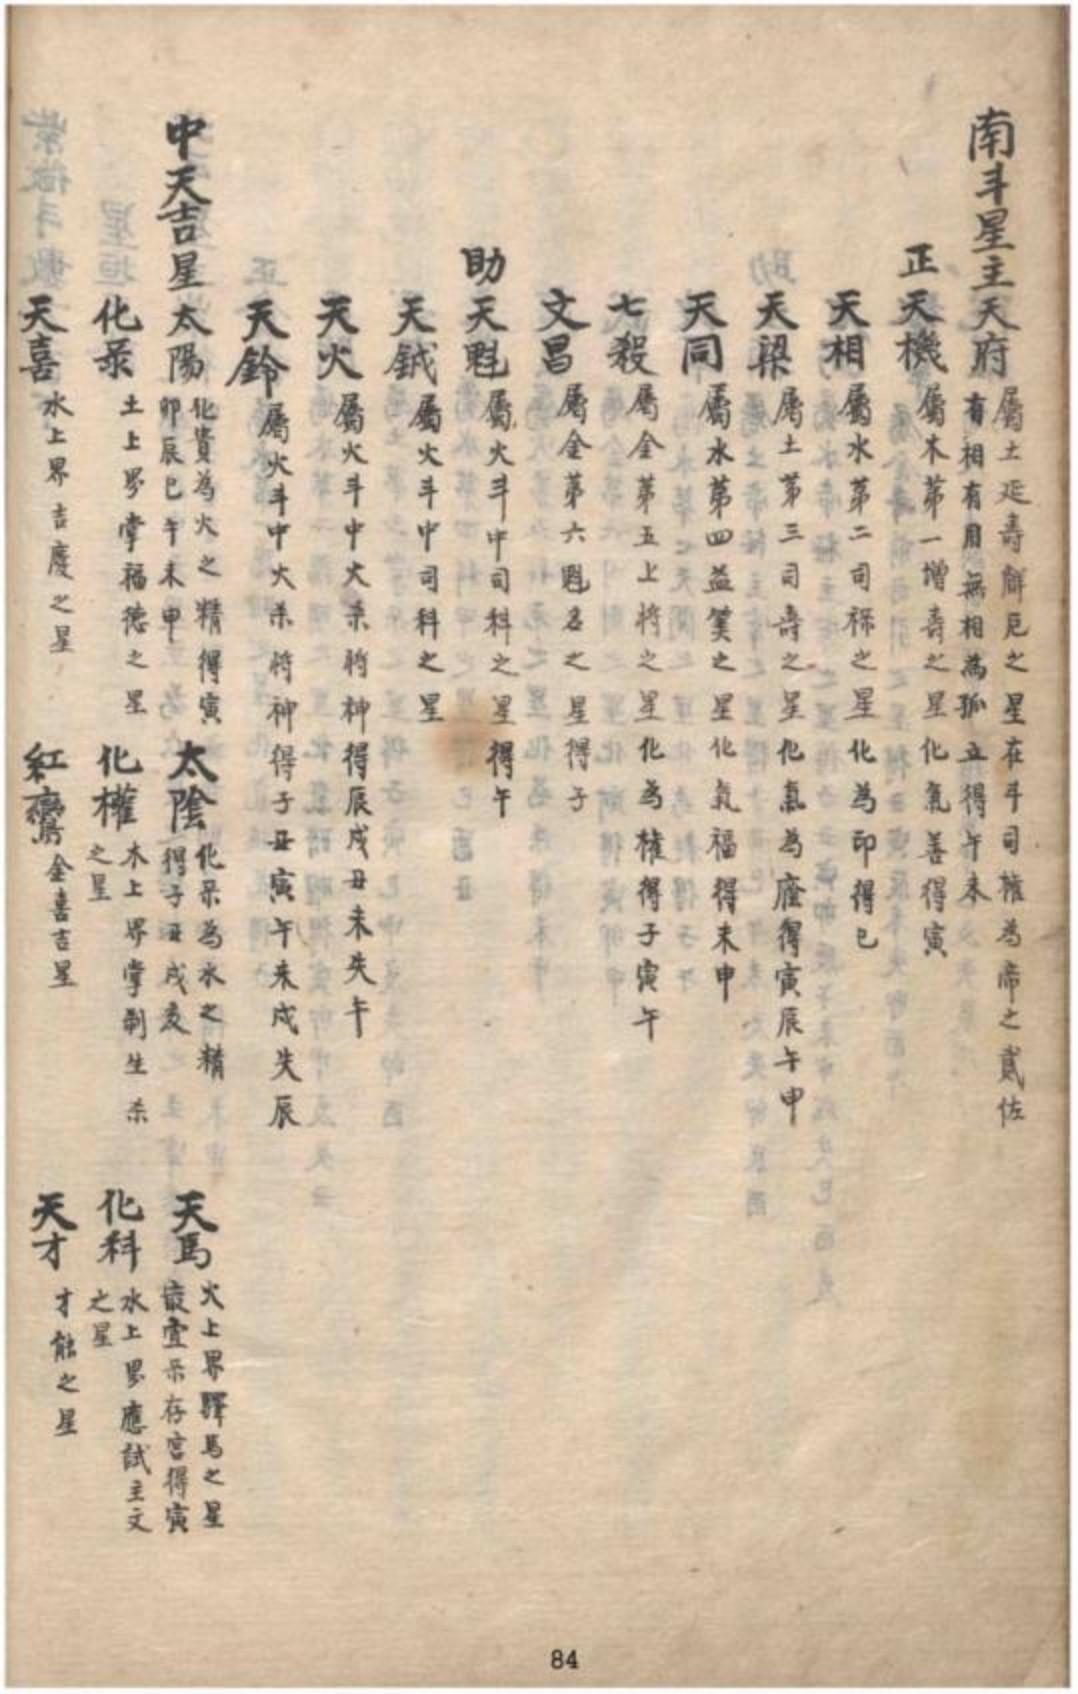 南斗星主天府
屬土延壽解厄之星在斗司權為帝之貳佐
有相有用無相為孤立得午未
正
天機
屬木第一增壽之星化氣善得寅
天相
屬水第二司祿之星化為印得巳
天梁
屬土第三司壽之星化氣為廕得寅辰午申
天同
屬水第四益筭之星化氣福得未申
七殺
屬金第五上將之星化為權得子寅午
文昌
屬金第六魁名之星得子
助
天魁
屬火斗中司科之星得午
天鉞
屬火斗中司科之星
天火
屬火斗中大杀將神得辰戌丑未失午
天鈴
屬火斗中大杀將神得子丑寅午未戌失辰
中天吉星
太陽
化貴為火之精得寅
卯辰巳午未申
太陰
化彔為水之精
得子丑戌亥
天馬
火上界驛馬之星
最宜彔存宮得寅
化彔
土上界掌福德之星
化權
木上界掌制生杀
之星
化科
水上界應試主文
之星
天喜
水上界吉慶之星
紅鸞
金喜吉星
天才
才能之星
84